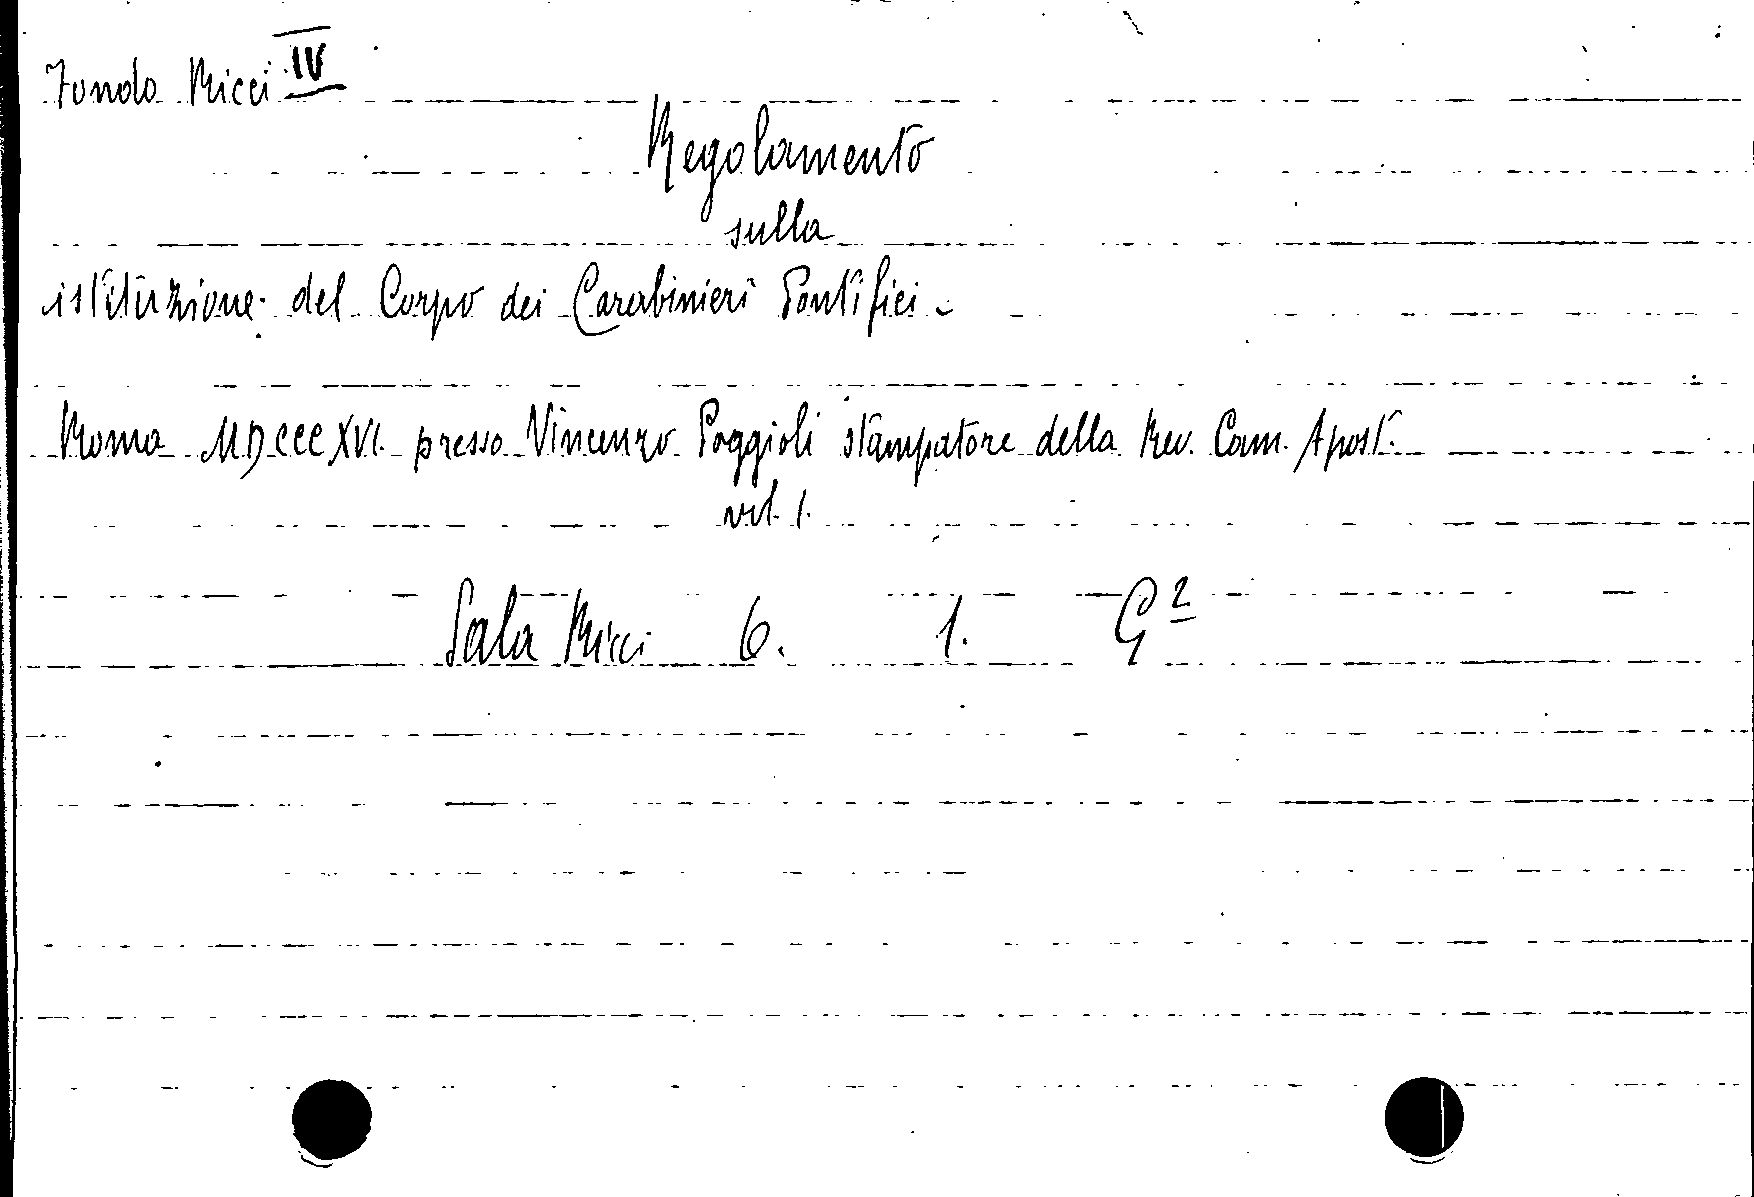 Fondo Ricci IV
Regolamento
sulla
istituzione del Corpo dei Carabinieri Pontifici.
Roma MDCCCXVI. presso Vincenzo Poggioli stampatore della Rev. Cam. Apost.
vol. 1.
Sala Ricci 6. 1. G²